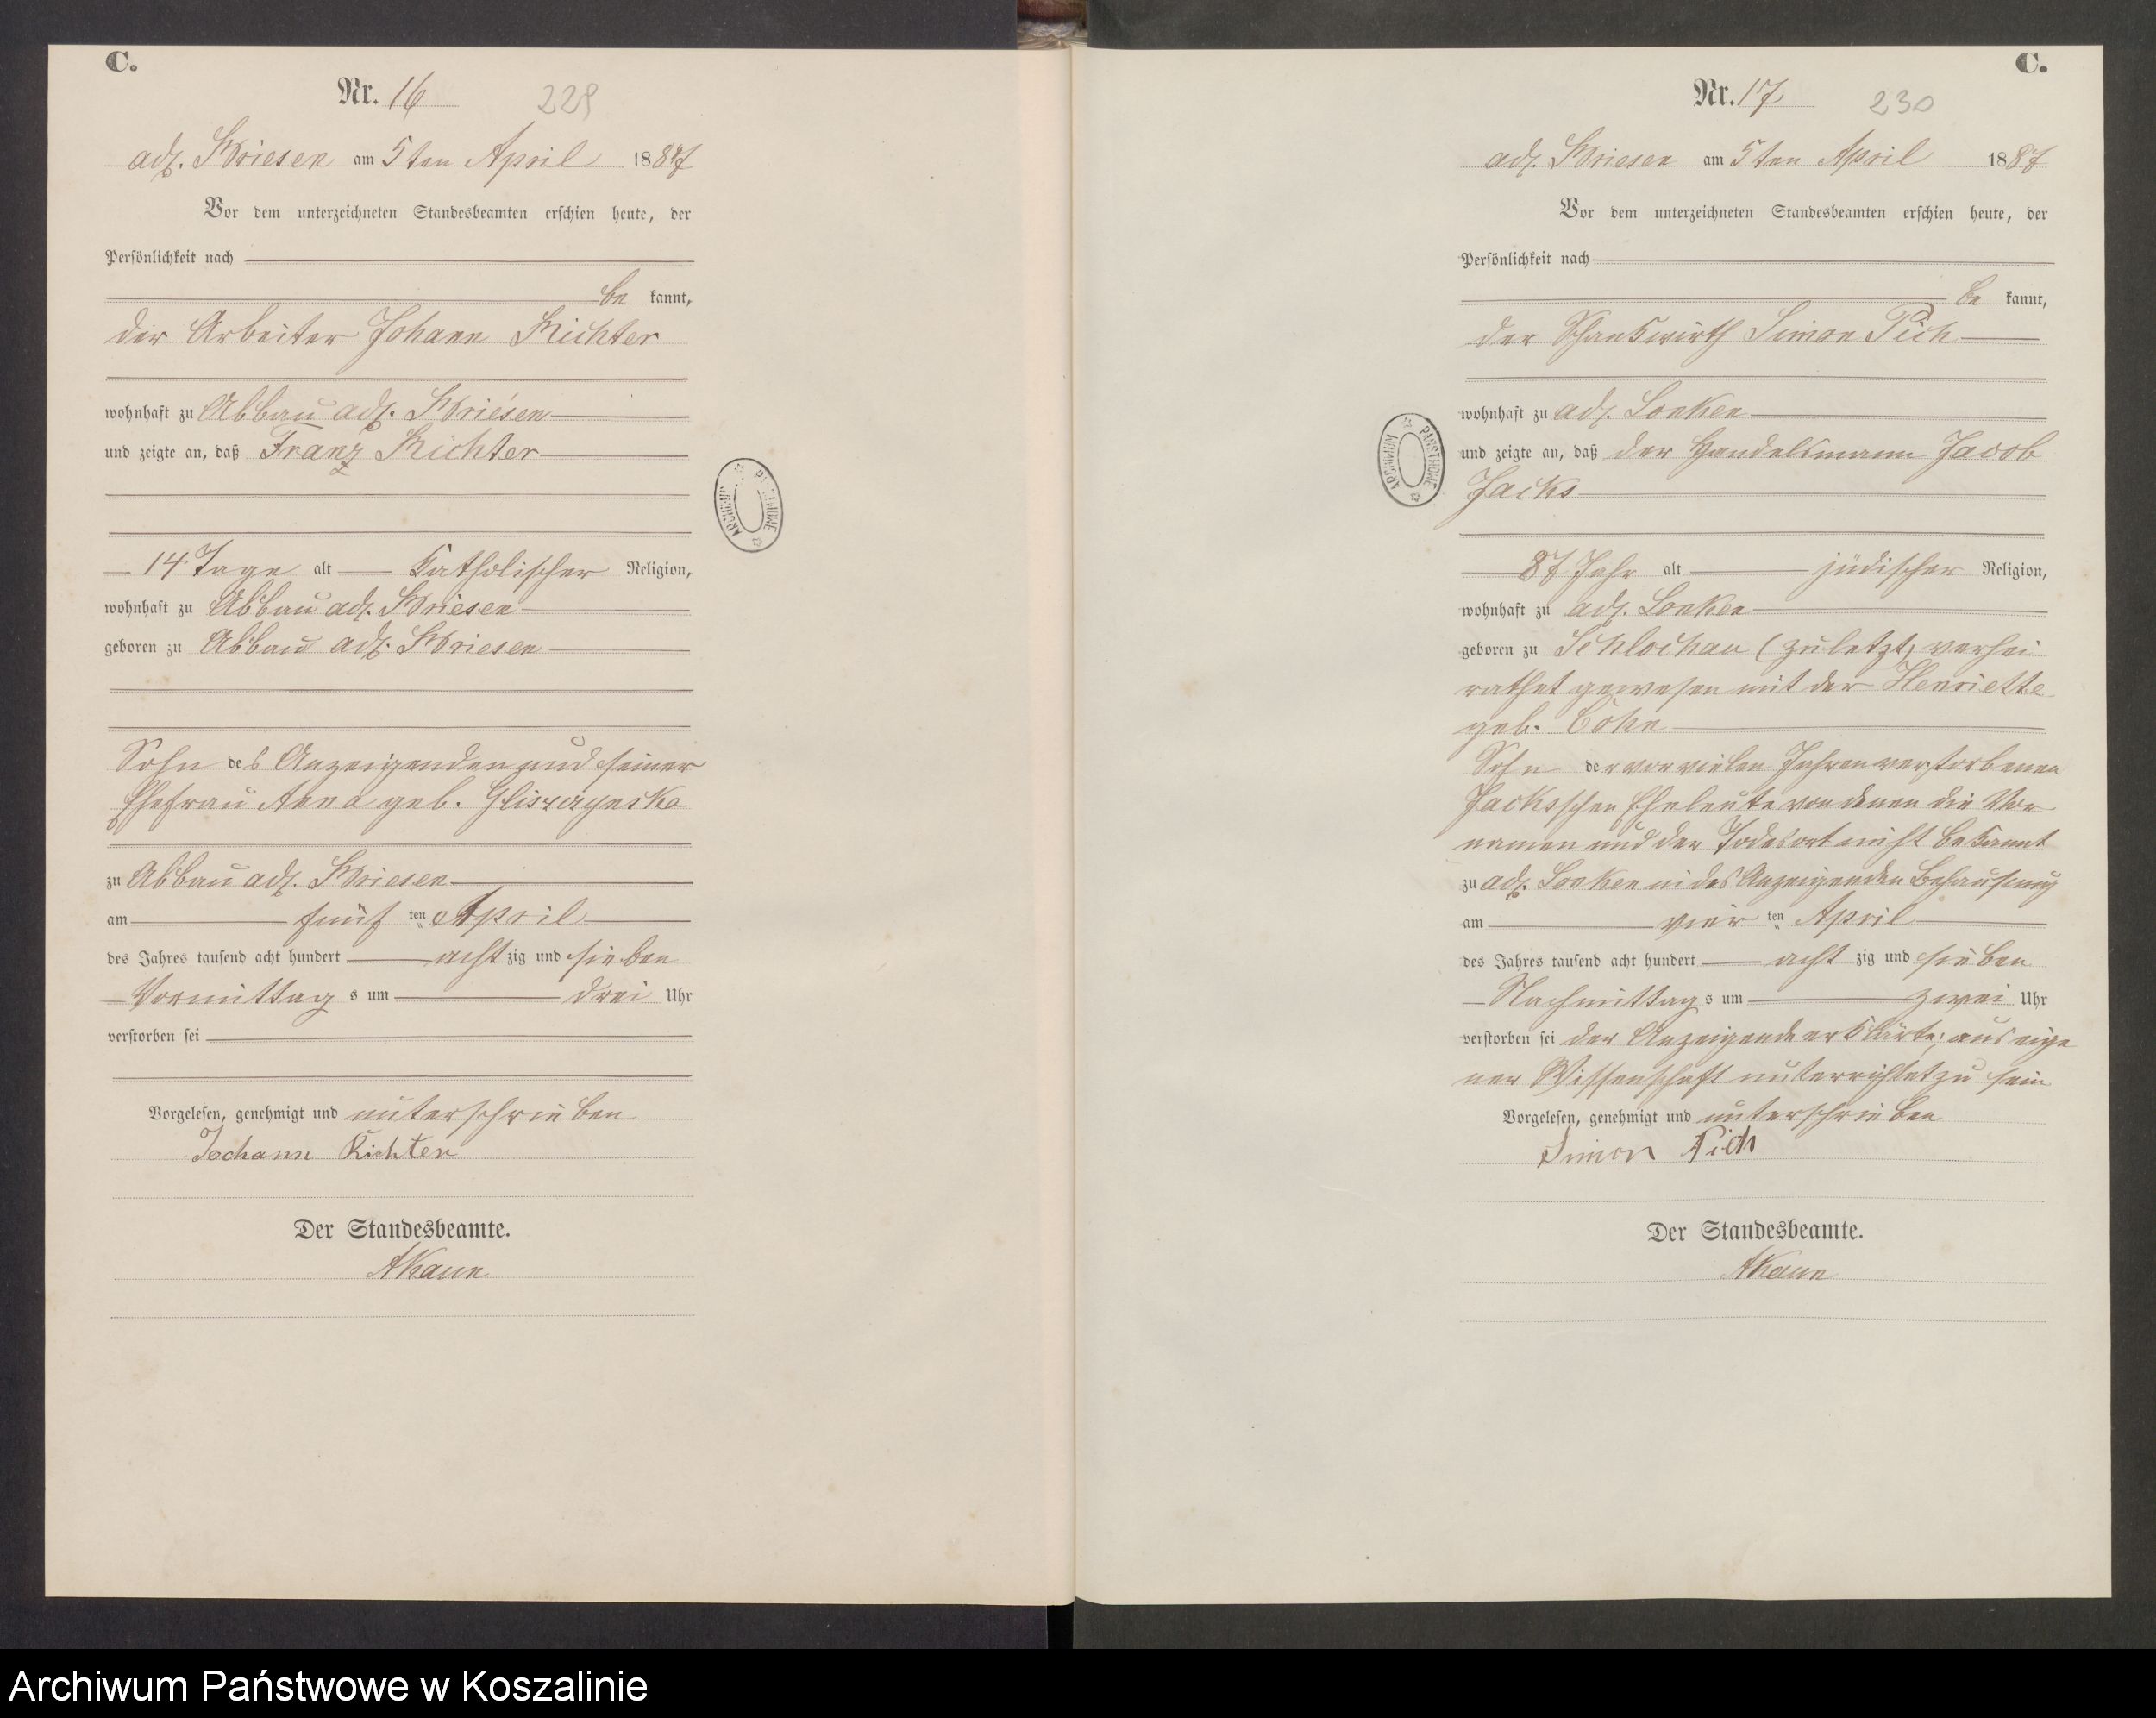 C.
Nr. 16 229
adl. Briesen am 5ten April 1887
Vor dem unterzeichneten Standesbeamten erschien heute, der
Persönlichkeit nach
be kannt,
der Arbeiter Johann Richter
wohnhaft zu Abbau adl. Briesen
und zeigte an, daß Franz Richter
14 Tage alt katholischer Religion,
wohnhaft zu Abbau adl. Briesen
geboren zu Abbau adl. Briesen
Sohn des Anzeigenden und seiner
Ehefrau Anna geb.
zu Abbau adl. Briesen
am fünf ten April
des Jahres tausend acht hundert acht zig und sieben
Vormittag s um drei Uhr
verstorben sei
Vorgelesen, genehmigt und unterschrieben
Jochann Richter
Der Standesbeamte.
ARCHIWUM PAŃSTWOWE
C.
Nr. 17 230
adl. Briesen am 5ten April 1887
Vor dem unterzeichneten Standesbeamten erschien heute, der
Persönlichkeit nach
be kannt,
der Schankwirth Simon Pich
wohnhaft zu adl. Lonken
und zeigte an, daß der Handelsmann Jacob
Jacks
87 Jahr alt jüdischer Religion,
wohnhaft zu adl. Lonken
geboren zu Schlochau (zuletzt) verhei
rathet gewesen mit der Henriette
geb. Cohn
Sohn der vor vielen Jahren verstorbenen
Jacksschen Eheleute von denen die Vor
namen und der Todesort nicht bekannt
zu adl. Lonken in des Anzeigenden Behausung
am vier ten April
des Jahres tausend acht hundert acht zig und sieben
Nachmittag s um zwei Uhr
verstorben sei der Anzeigende erklärte, aus eige
ner Wissenschaft unterrichtet zu sein
Vorgelesen, genehmigt und unterschrieben
Simon Pich
Der Standesbeamte.
ARCHIWUM PAŃSTWOWE
Archiwum Państwowe w Koszalinie